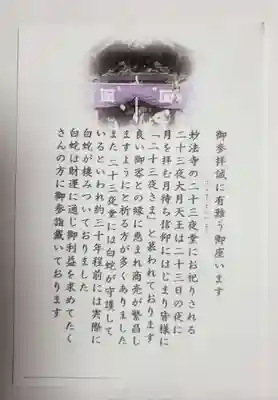 御参拝誠に有難う御座います
妙法寺の二十三夜堂にお祀りされる
二十三夜大月天王は二十三日の夜に
月を拝む月待ち信仰にはじまり皆様に
「二十三夜さま」と慕われております
良い御客との縁に恵まれ商売が繁昌し
ますようにと祈る方が多くありました
また、二十三夜堂には白蛇が守護して
いるといわれ約三十年程前には実際に
白蛇が棲みついておりました
白蛇は財運に通じ御利益を求めてたく
さんの方に御参詣戴いております